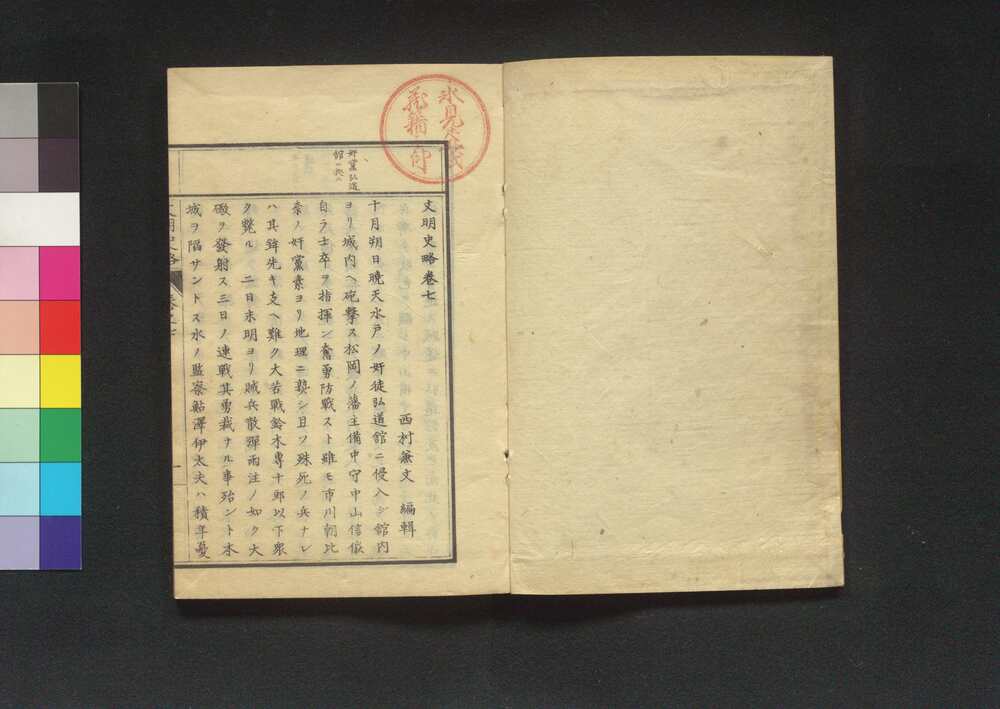 文明史略卷七
西村兼文　編輯
十月朔日曉天水戸ノ奸徒弘道館ニ侵入シ館内
ヨリ城内ヘ砲撃ス松岡ノ藩主備中守中山信徴
自ラ士卒ヲ指揮シ奮勇防戰スト雖モ市川朝比
奈ノ奸黨素ヨリ地理ニ熟シ且ツ殊死ノ兵ナレ
ハ其鋒先キ支ヘ難ク大苦戰鈴木専十郎以下衆
ク斃ル二日未明ヨリ賊兵散彈雨注ノ如ク大
礮ヲ發射ス三日ノ連戰其勇裁ナル事殆ント本
城ヲ陷サントス水ノ監察鮎澤伊太夫ハ積年憂
奸黨弘道
館ニ拠ル
氷見
藏
義籍之印
文明史略　卷之七
一